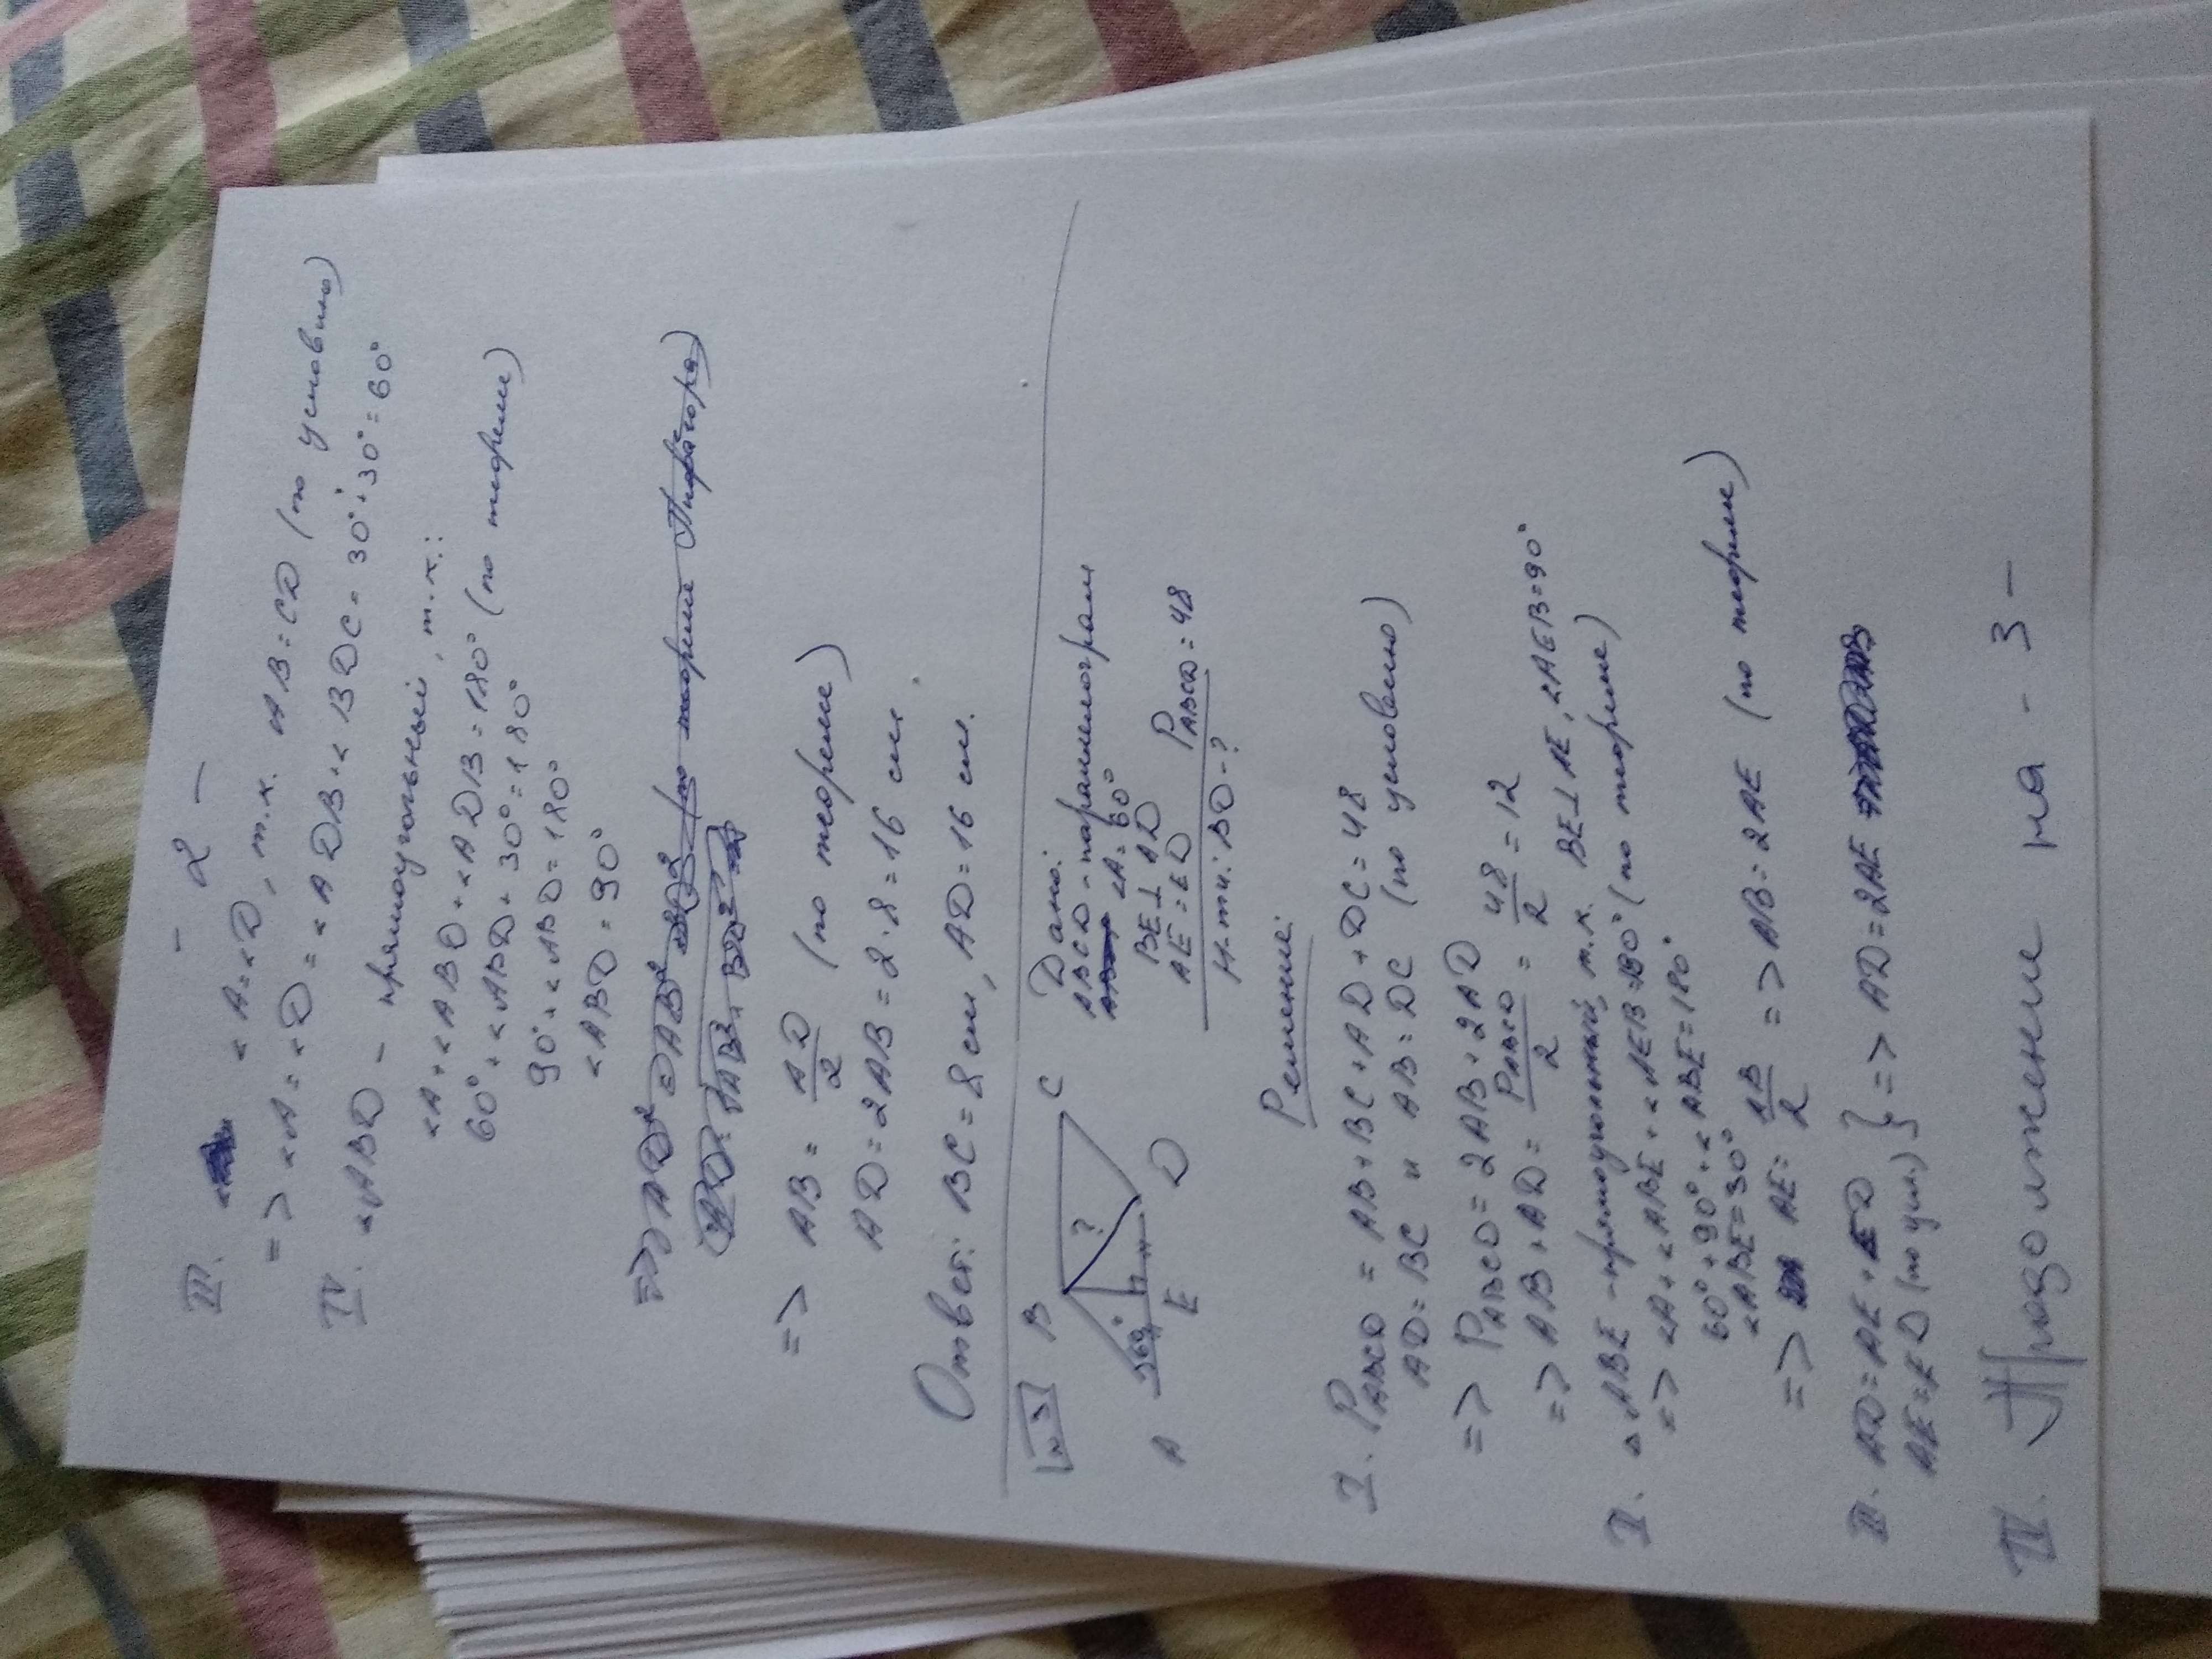 - 2 -
III. ∠A = ∠D, т.к. AB = CD (по условию)
=> ∠A = ∠D = ∠ADB + ∠BDC = 30° + 30° = 60°
IV. ∠ABD - прямоугольный, т.к.:
∠A + ∠ABD + ∠ADB = 180° (по теореме)
60° + ∠ABD + 30° = 180°
90° + ∠ABD = 180°
∠ABD = 90°
=> AD² = AB² BD² (по теореме Пифагора)
AD = √AB² + BD²
=> AB = AD/2 (по теореме)
AD = 2AB = 2·8 = 16 см
Ответ: BC = 8 см, AD = 16 см.
N3
B C
? 
60°
A E D
Дано:
ABCD - параллелограм
∠A = 60°
BE ⊥ AD
AE = ED PABCD = 48
Н-ти: BD - ?
Решение:
I. PABCD = AB + BC + AD + DC = 48
AD = BC и AB = DC (по условию)
=> PABCD = 2AB + 2AD
=> AB + AD = PABCD/2 = 48/2 = 12
II. △ABE - прямоугольный, т.к. BE ⊥ AE, ∠AEB = 90°
=> ∠A + ∠ABE + ∠AEB = 180° (по теореме)
60° + 90° + ∠ABE = 180°
∠ABE = 30°
=> AE = AB/2 => AB = 2AE (по теореме)
III. AD = AE + ED
AE = ED (по усл.) } => AD = 2AE
IV. Продолжение на - 3 -